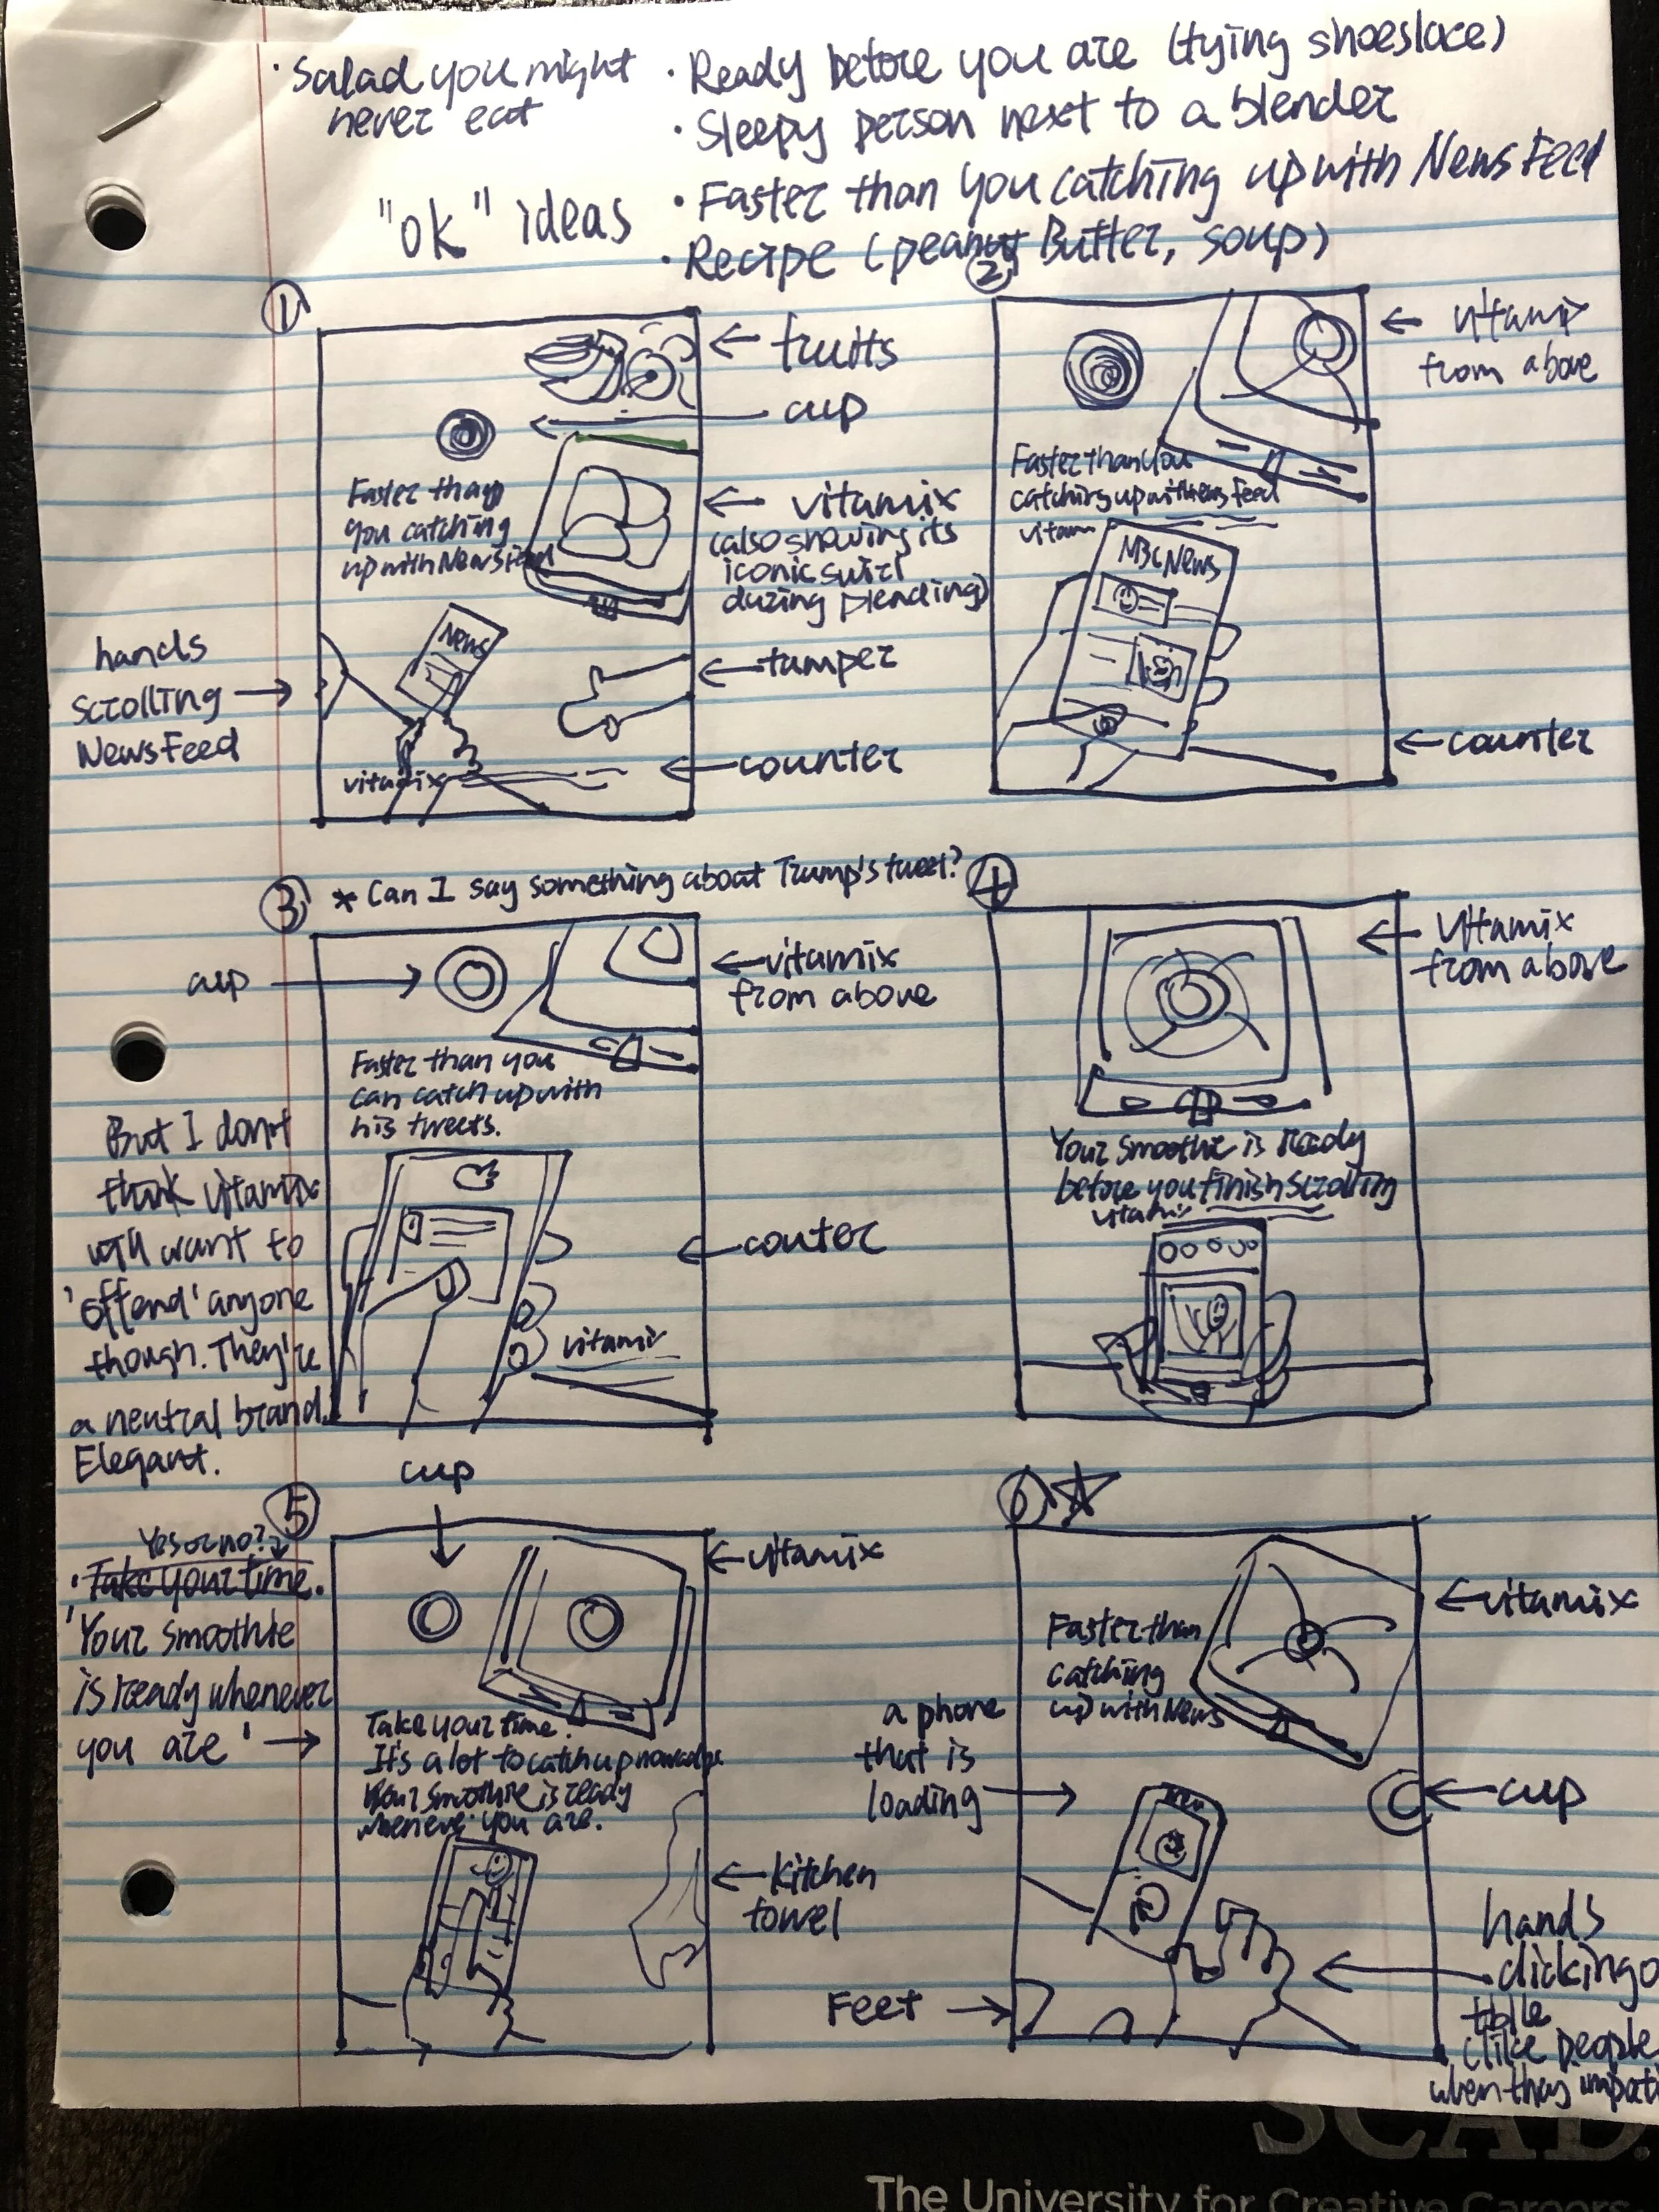 · Salad you might
never eat
"ok" ideas
· Ready before you are (tying shoeslace)
· Sleepy person next to a blender
· Faster than you catching up with News Feed
· Recipe (peanut Butter, soup)
①
← fruits
← cup
Faster than
you catching
up with Newsfeed
← vitamix
(also showing its
iconic swirl
during blending)
News
hands
scrolling →
NewsFeed
← tamper
← counter
vitamix
②
← vitamix
from above
Faster than you
catching up with News Feed
vitam
NBC News
← counter
③ * Can I say something about Trump's tweet?
cup →
← vitamix
from above
Faster than you
can catch up with
his tweets.
But I don't
think vitamix
will want to
'offend' anyone
though. They're
a neutral brand.
Elegant.
← couter
vitamix
④
← Vitamix
from above
Your smoothie is ready
before you finish scrolling
vitamix
⑤
cup
↓
Yes or no?
· Take your time.
'Your smoothie
is ready whenever
you are' →
← vitamix
Take your time.
It's a lot to catch up nowadays.
Your smoothie is ready
whenever you are.
← Kitchen
towel
⑥ ☆
← vitamix
Faster than
catching
up with News
a phone
that is
loading →
← cup
Feet →
hands
clicking
table
(like people
when they
SCAD.
The University for Creative Careers